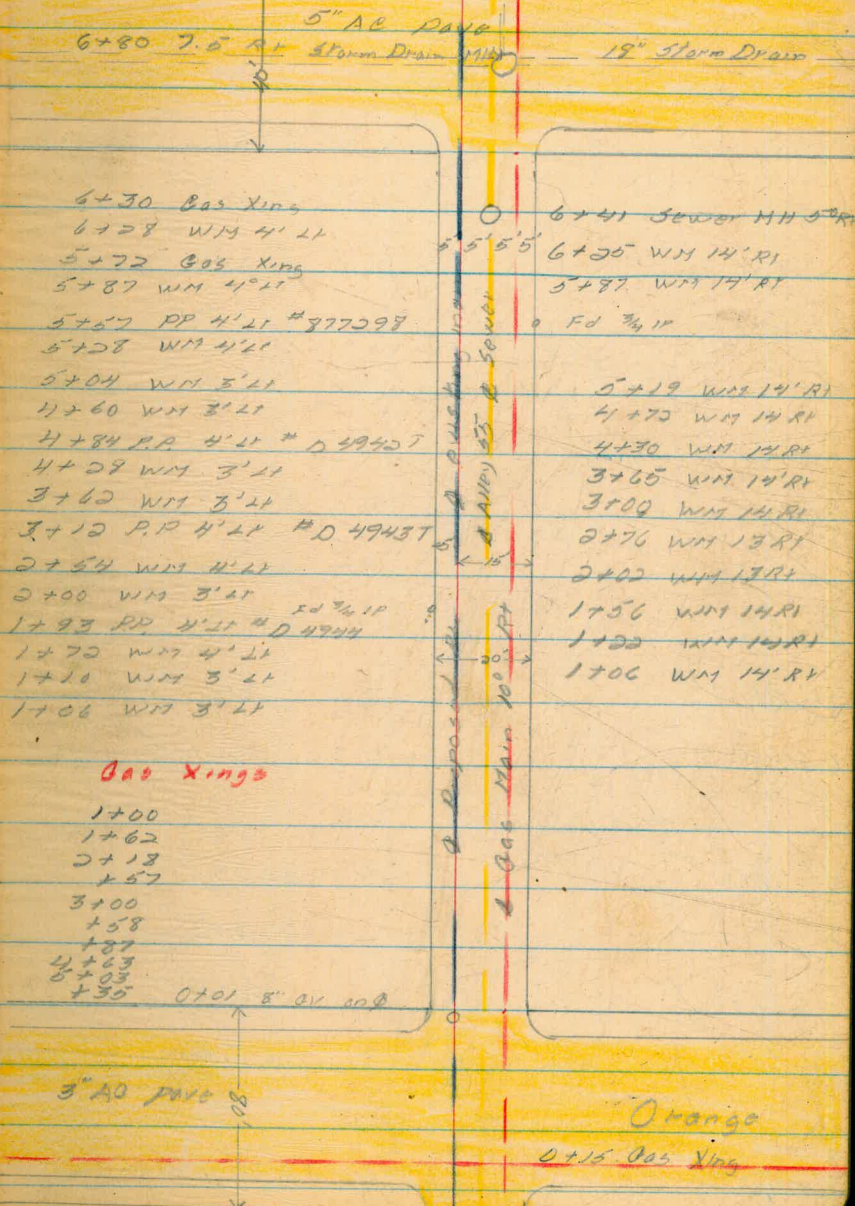 5" AC Pave
6+80 7.5 Rt Storm Drain MH 18" Storm Drain
40'
6+30 Gas Xing
6+28 WM 4' Lt
5+72 Gas Xing
5+87 WM 4° Lt
5+57 PP 4' Lt #877298
5+28 WM 4' Lt
5+04 WM 3' Lt
4+60 WM 3' Lt
4+84 P.P. 4' Lt # D 4942T
4+28 WM 3' Lt
3+62 WM 3' Lt
3+12 P.P 4' Lt #D 4943T
2+54 WM 4' Lt
2+00 WM 3' Lt
Fd 3/4 IP
1+93 P.P. 4' Lt # D 4944
1+72 WM 4' Lt
1+10 WM 3' Lt
1+06 WM 3' Lt
Gas Xings
1+00
1+62
2+18
+57
3+00
+58
+87
4+63
5+03
+35
5 5' 5' 5'
Alley & Sewer
5
15
20'
Proposed
Gas Main 10° Rt
6+41 Sewer MH 5° Rt
6+25 WM 14' Rt
5+87 WM 14' Rt
Fd 3/4 IP
5+19 WM 14' Rt
4+72 WM 14 Rt
4+30 WM 14 Rt
3+65 WM 14' Rt
3+00 WM 14 Rt
2+76 WM 13 Rt
2+02 WM 13 Rt
1+56 WM 14 Rt
1+22 WM 14 Rt
1+06 WM 14' Rt
3" AC Pave
80'
Orange
0+15 Gas Xing